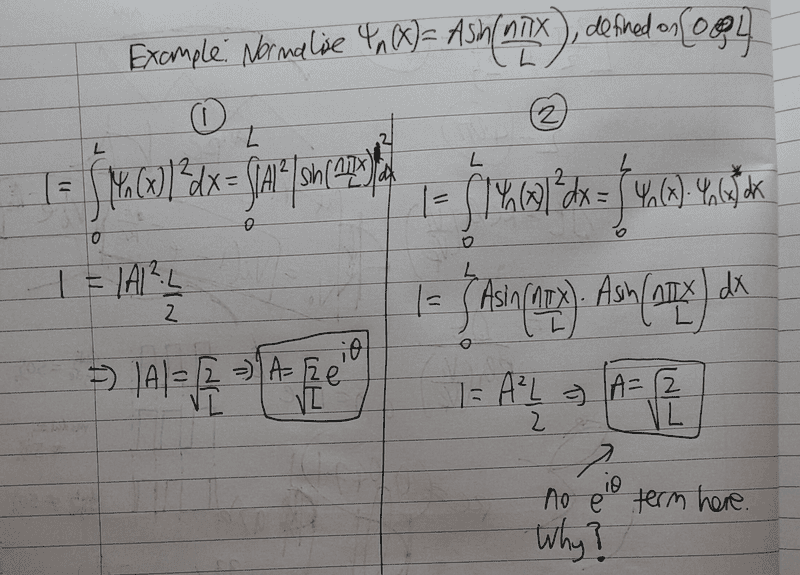 Example: Normalise Ψn(x) = A sin(nπx/L), defined on [0, L]
①
1 = ∫₀ᴸ |Ψn(x)|² dx = ∫₀ᴸ |A|² |sin(nπx/L)|² dx
1 = |A|² · L/2
⇒ |A| = √2/√L ⇒ A = √2/√L e^{iθ}
②
1 = ∫₀ᴸ |Ψn(x)|² dx = ∫₀ᴸ Ψn(x) · Ψn(x)* dx
1 = ∫₀ᴸ A sin(nπx/L) · A sin(nπx/L) dx
1 = A² L/2 ⇒ A = √2/√L
no e^{iθ} term here.
Why?